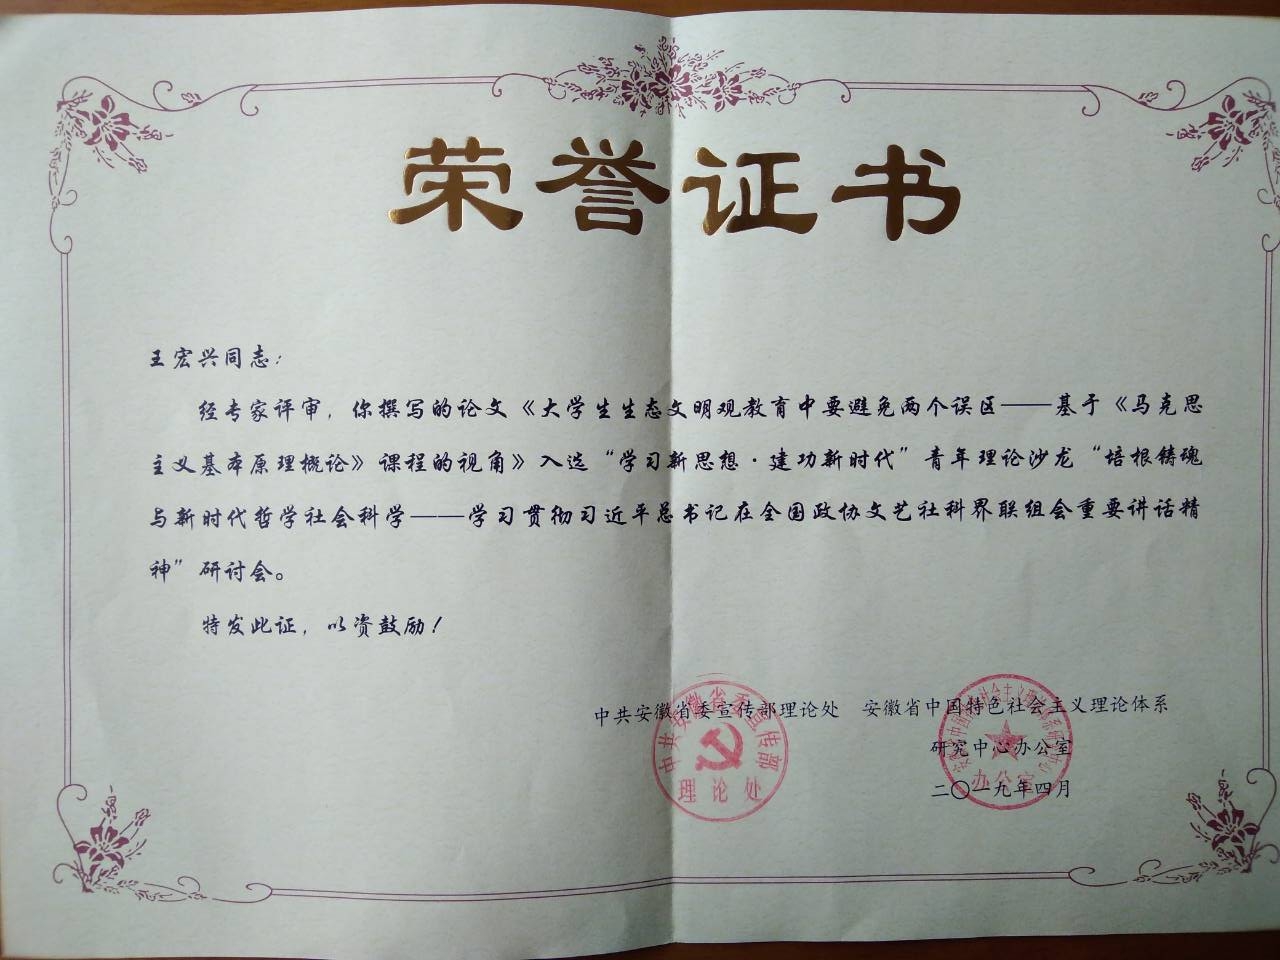 荣誉证书
王宏兴同志：
经专家评审，你撰写的论文《大学生生态文明观教育中要避免两个误区——基于《马克思
主义基本原理概论》课程的视角》入选“学习新思想·建功新时代”青年理论沙龙“培根铸魂
与新时代哲学社会科学——学习贯彻习近平总书记在全国政协文艺社科界联组会重要讲话精
神”研讨会。
特发此证，以资鼓励！
中共安徽省委宣传部理论处 安徽省中国特色社会主义理论体系
研究中心办公室
二〇一九年四月
中共安徽省委宣传部
理论处
安徽省中国特色社会主义理论体系研究中心
办公室